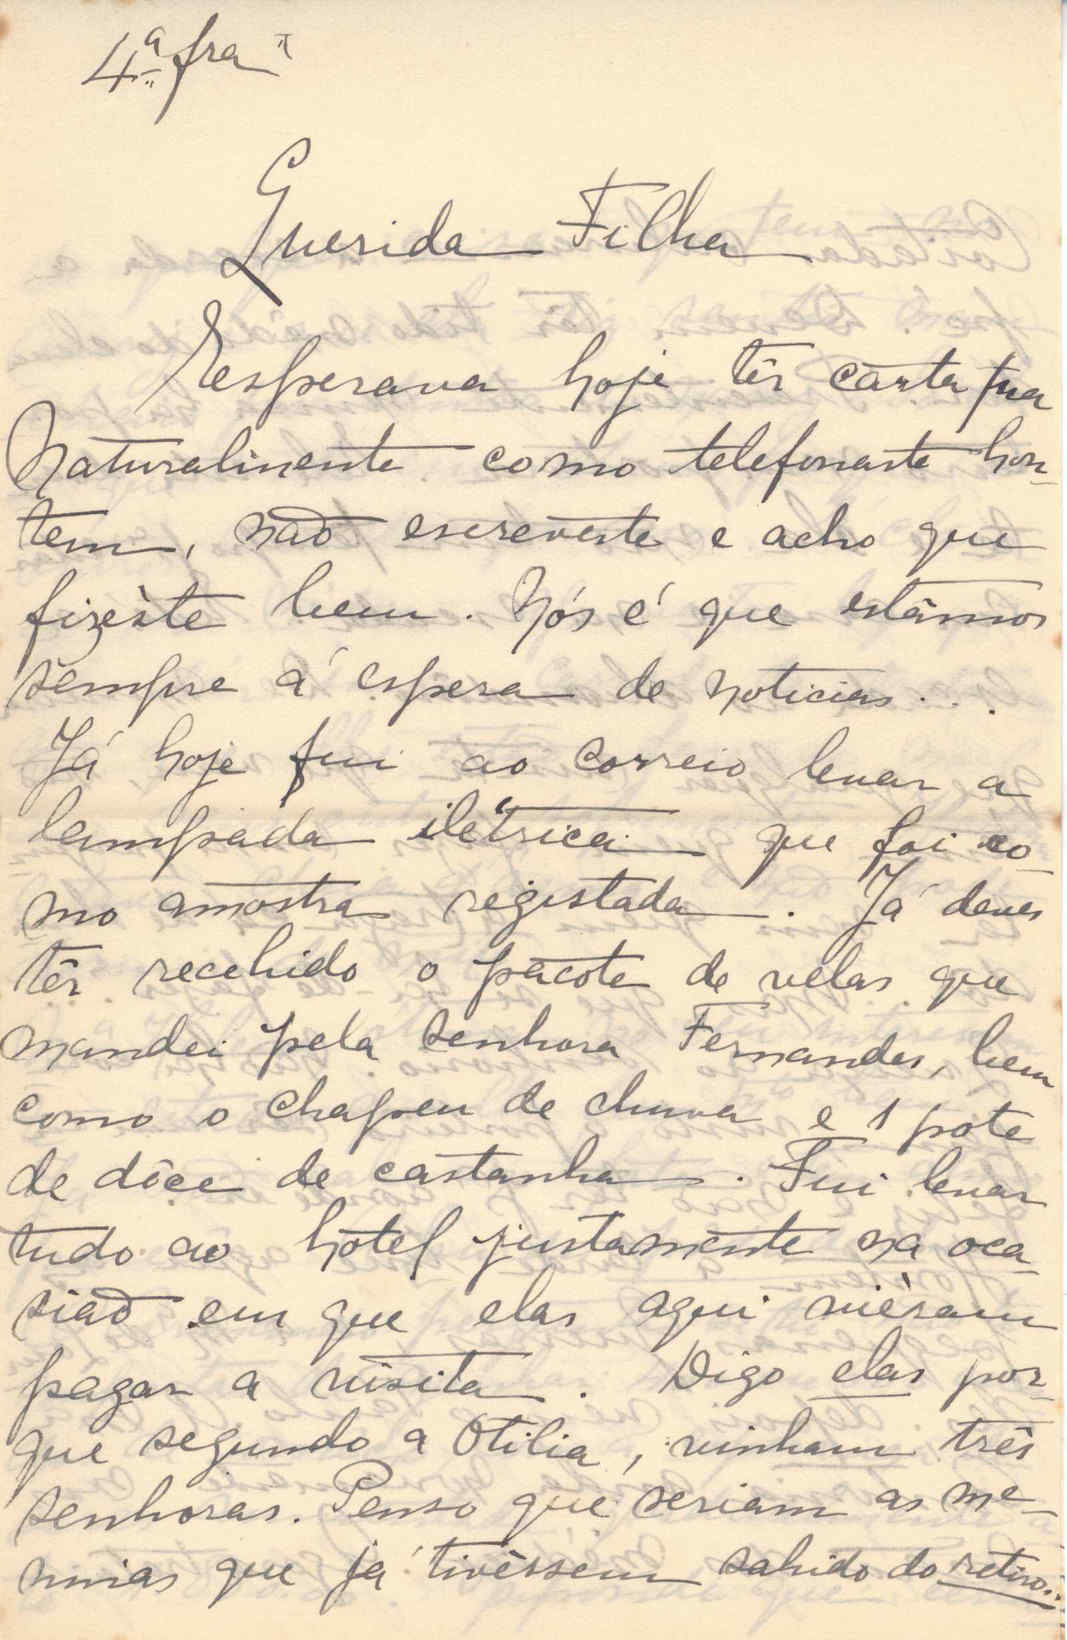 4ª fra
Querida Filha
Esperava hoje têr carta tua
Naturalmente como telefonaste hon-
tem, não escreveste e acho que
fizèste bem. Nós é que estâmos
sempre á espera de noticias...
Já hoje fui ao correio levar a
lampada iletrica que foi co-
mo amostra registada. Já deves
têr recebido o pacote de velas que
mandei pela senhora Fernandes, bem
como o chapeu de chuva e 1 pote
de dôce de castanha. Fui levar
tudo ao hotel justamente na oca-
sião em que elas aqui vièram
pagar a visita. Digo elas por-
que segundo a Otilia, vinham três
senhoras. Penso que seriam as me-
ninas que já tivèssem sahido do retiro..